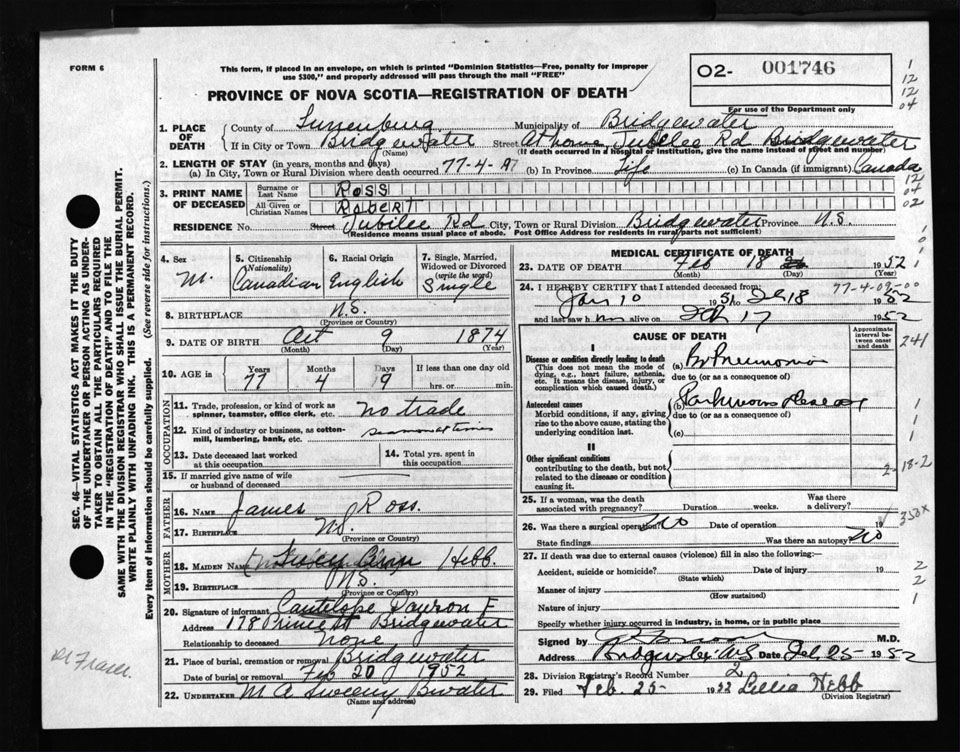 FORM 6
This form, if placed in an envelope, on which is printed "Dominion Statistics—Free, penalty for improper
use $300," and properly addressed will pass through the mail "FREE"
O2- 001746
For use of the Department only
PROVINCE OF NOVA SCOTIA—REGISTRATION OF DEATH
1. PLACE OF DEATH
County of Lunenburg Municipality of Bridgewater
If in City or Town Bridgewater Street At home Jubilee Rd Bridgewater
(Name) (If death occurred in a hospital or institution, give the name instead of street and number)
2. LENGTH OF STAY (in years, months and days)
(a) In City, Town or Rural Division where death occurred 77-4- (b) In Province Life (c) In Canada (if immigrant) Canada
3. PRINT NAME OF DECEASED
Surname or Last Name ROSS
All Given or Christian Names ROBERT
RESIDENCE No. Street Jubilee Rd City, Town or Rural Division Bridgewater Province N.S.
(Residence means usual place of abode. Post Office Address for residents in rural parts not sufficient)
4. Sex M.
5. Citizenship (Nationality) Canadian
6. Racial Origin English
7. Single, Married, Widowed or Divorced (write the word) Single
8. BIRTHPLACE N.S.
(Province or Country)
9. DATE OF BIRTH Oct 9 1874
(Month) (Day) (Year)
10. AGE in Years 77 Months 4 Days 9 If less than one day old
hrs. or min.
OCCUPATION
11. Trade, profession, or kind of work as spinner, teamster, office clerk, etc. no trade
12. Kind of industry or business, as cotton-mill, lumbering, bank, etc.
13. Date deceased last worked at this occupation
14. Total yrs. spent in this occupation
15. If married give name of wife or husband of deceased
FATHER
16. Name James Ross.
17. Birthplace N.S.
(Province or Country)
MOTHER
18. MAIDEN NAME Hebb.
19. BIRTHPLACE N.S.
(Province or Country)
20. Signature of informant Cantelope Dawson E
Address 178 Prince St Bridgewater
Relationship to deceased none
21. Place of burial, cremation or removal Bridgewater
Date of burial or removal Feb 20 1952
22. UNDERTAKER M A Sweeny Bwater
(Name and address)
MEDICAL CERTIFICATE OF DEATH
23. DATE OF DEATH Feb 18 1952
(Month) (Day) (Year)
24. I HEREBY CERTIFY that I attended deceased from: 77-4-09-00
Jan 10 1951 to Feb 18 1952
and last saw him alive on Feb 17 1952
CAUSE OF DEATH
Approximate interval between onset and death
I
Disease or condition directly leading to death
(This does not mean the mode of dying, e.g., heart failure, asthenia, etc. It means the disease, injury, or complication which caused death.)
(a) Br Pneumonia
due to (or as a consequence of)
Antecedent causes
Morbid conditions, if any, giving rise to the above cause, stating the underlying condition last.
(b) Parkinsons disease
due to (or as a consequence of)
(c)
II
Other significant conditions
contributing to the death, but not related to the disease or condition causing it.
25. If a woman, was the death associated with pregnancy? Duration weeks. Was there a delivery?
26. Was there a surgical operation? No Date of operation 19
State findings Was there an autopsy? No
27. If death was due to external causes (violence) fill in also the following:—
Accident, suicide or homicide? Date of injury 19
(State which)
Manner of injury
(How sustained)
Nature of injury
Specify whether injury occurred in industry, in home, or in public place
Signed by M.D.
Address Bridgewater NS Date Feb 25 1952
28. Division Registrar's Record Number 2
29. Filed Feb. 25- 1952 Lillia Hebb
(Division Registrar)
SEC. 46—VITAL STATISTICS ACT MAKES IT THE DUTY
OF THE UNDERTAKER OR PERSON ACTING AS UNDER-
TAKER TO OBTAIN ALL THE PARTICULARS REQUIRED
IN THE "REGISTRATION OF DEATH" AND TO FILE THE
SAME WITH THE DIVISION REGISTRAR WHO SHALL ISSUE THE BURIAL PERMIT.
WRITE PLAINLY WITH UNFADING INK. THIS IS A PERMANENT RECORD.
Every item of information should be carefully supplied. (See reverse side for instructions.)
1
12
12
04
12
04
02
241
1
1
1
2-18-2
350X
2
2
1